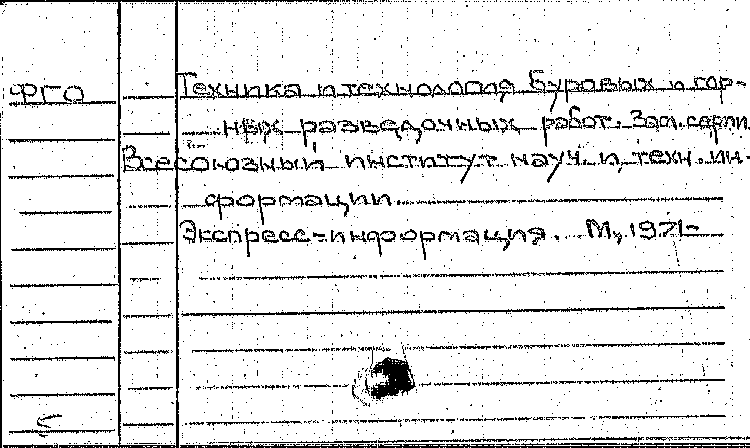 ФГО
Техника и технология буровых и гор-
ных разведочных работ. Заг. серии.
Всесоюзный институт науч. и техн. ин-
формации.
Экспресс-информация. М., 1971-